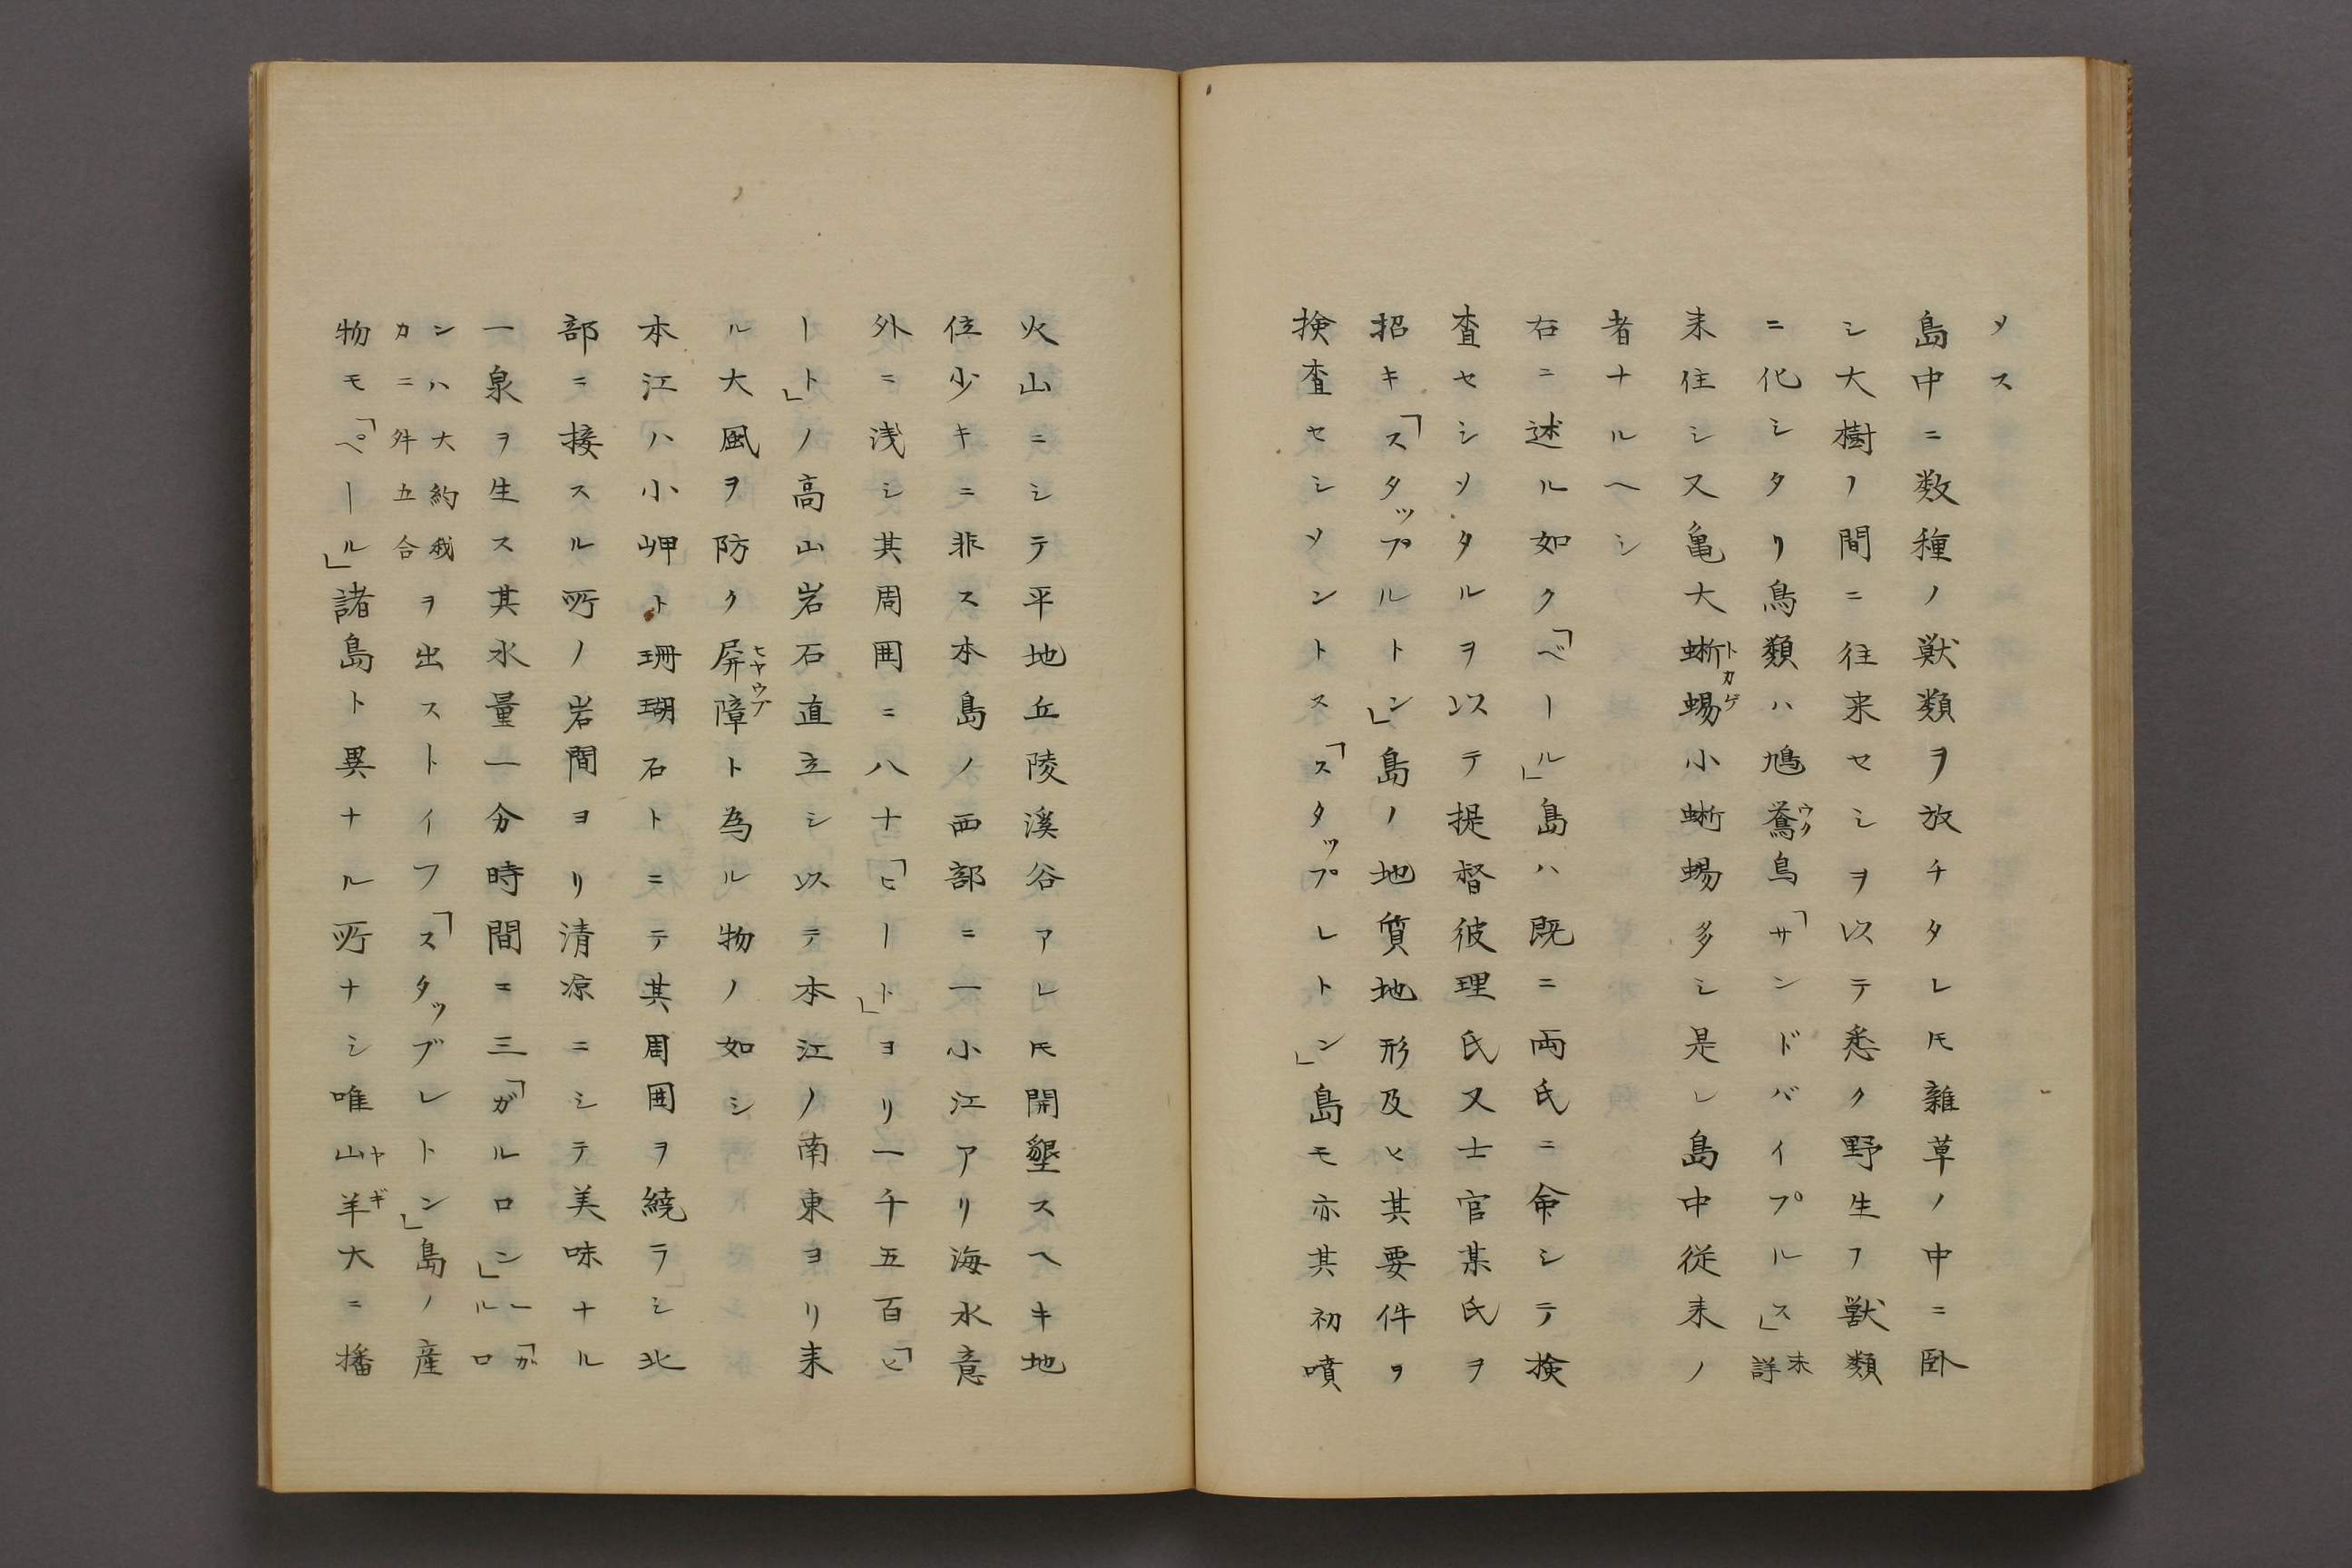 ソス
島中ニ数種ノ獣類ヲ放チタレ𪜈雑草ノ中ニ臥
シ大樹ノ間ニ往来セシヲ以テ悉ク野生フ獣類
ニ化シタリ鳥類ハ鳩鵞ウク鳥「サンドバイプルス」未詳
来住シ又亀大蜥蜴トカゲ小蜥蜴多シ是レ島中従来ノ
者ナルヘシ
右ニ述ル如ク「ベール」島ハ既ニ両氏ニ命シテ検
査セシソタルヲ以テ提督彼理氏又士官某氏ヲ
招キ「スタップルトン」島ノ地質地形及ヒ其要件ヲ
検査セシソントス「スタップレトン」島モ亦其初噴
火山ニシテ平地丘陵溪谷アレ𪜈開墾スヘキ地
位少キニ非ス本島ノ西部ニ一小江アリ海水意
外ニ浅シ其周囲ニ八十「ヒート」ヨリ一千五百「ヒ
ート」ノ高山岩石直立シ以テ本江ノ南東ヨリ来
ル大風ヲ防ク屏障ヒヤウブト為ル物ノ如シ
本江ハ小岬ト珊瑚石トニテ其周囲ヲ繞ラシ北
部ニ接スル所ノ岩間ヨリ清凉ニシテ美味ナル
一泉ヲ生ス其水量一分時間ニ三「ガルロン」一「ガルロ
ンハ大約我カニ舛五合ヲ出ストイフ「スタッブレトン」島ノ産
物モ「ペール」諸島ト異ナル所ナシ唯山羊ヤギ大ニ播